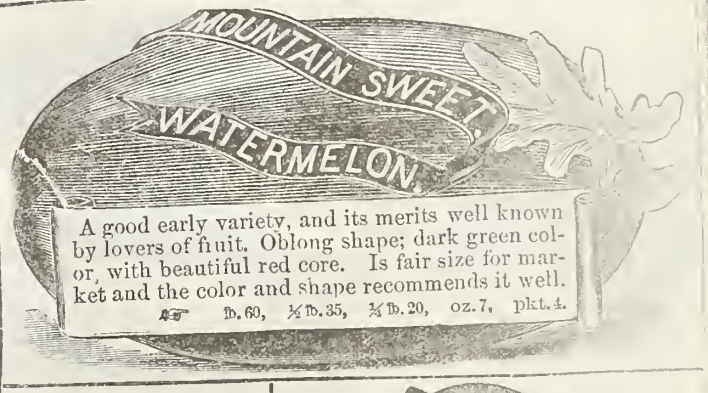 MOUNTAIN SWEET.
WATERMELON.
A good early variety, and its merits well known
by lovers of fruit. Oblong shape; dark green col-
or, with beautiful red core. Is fair size for mar-
ket and the color and shape recommends it well.
☞ ℔. 60, ½ ℔. 35, ¼ ℔. 20, oz. 7, pkt. 4.